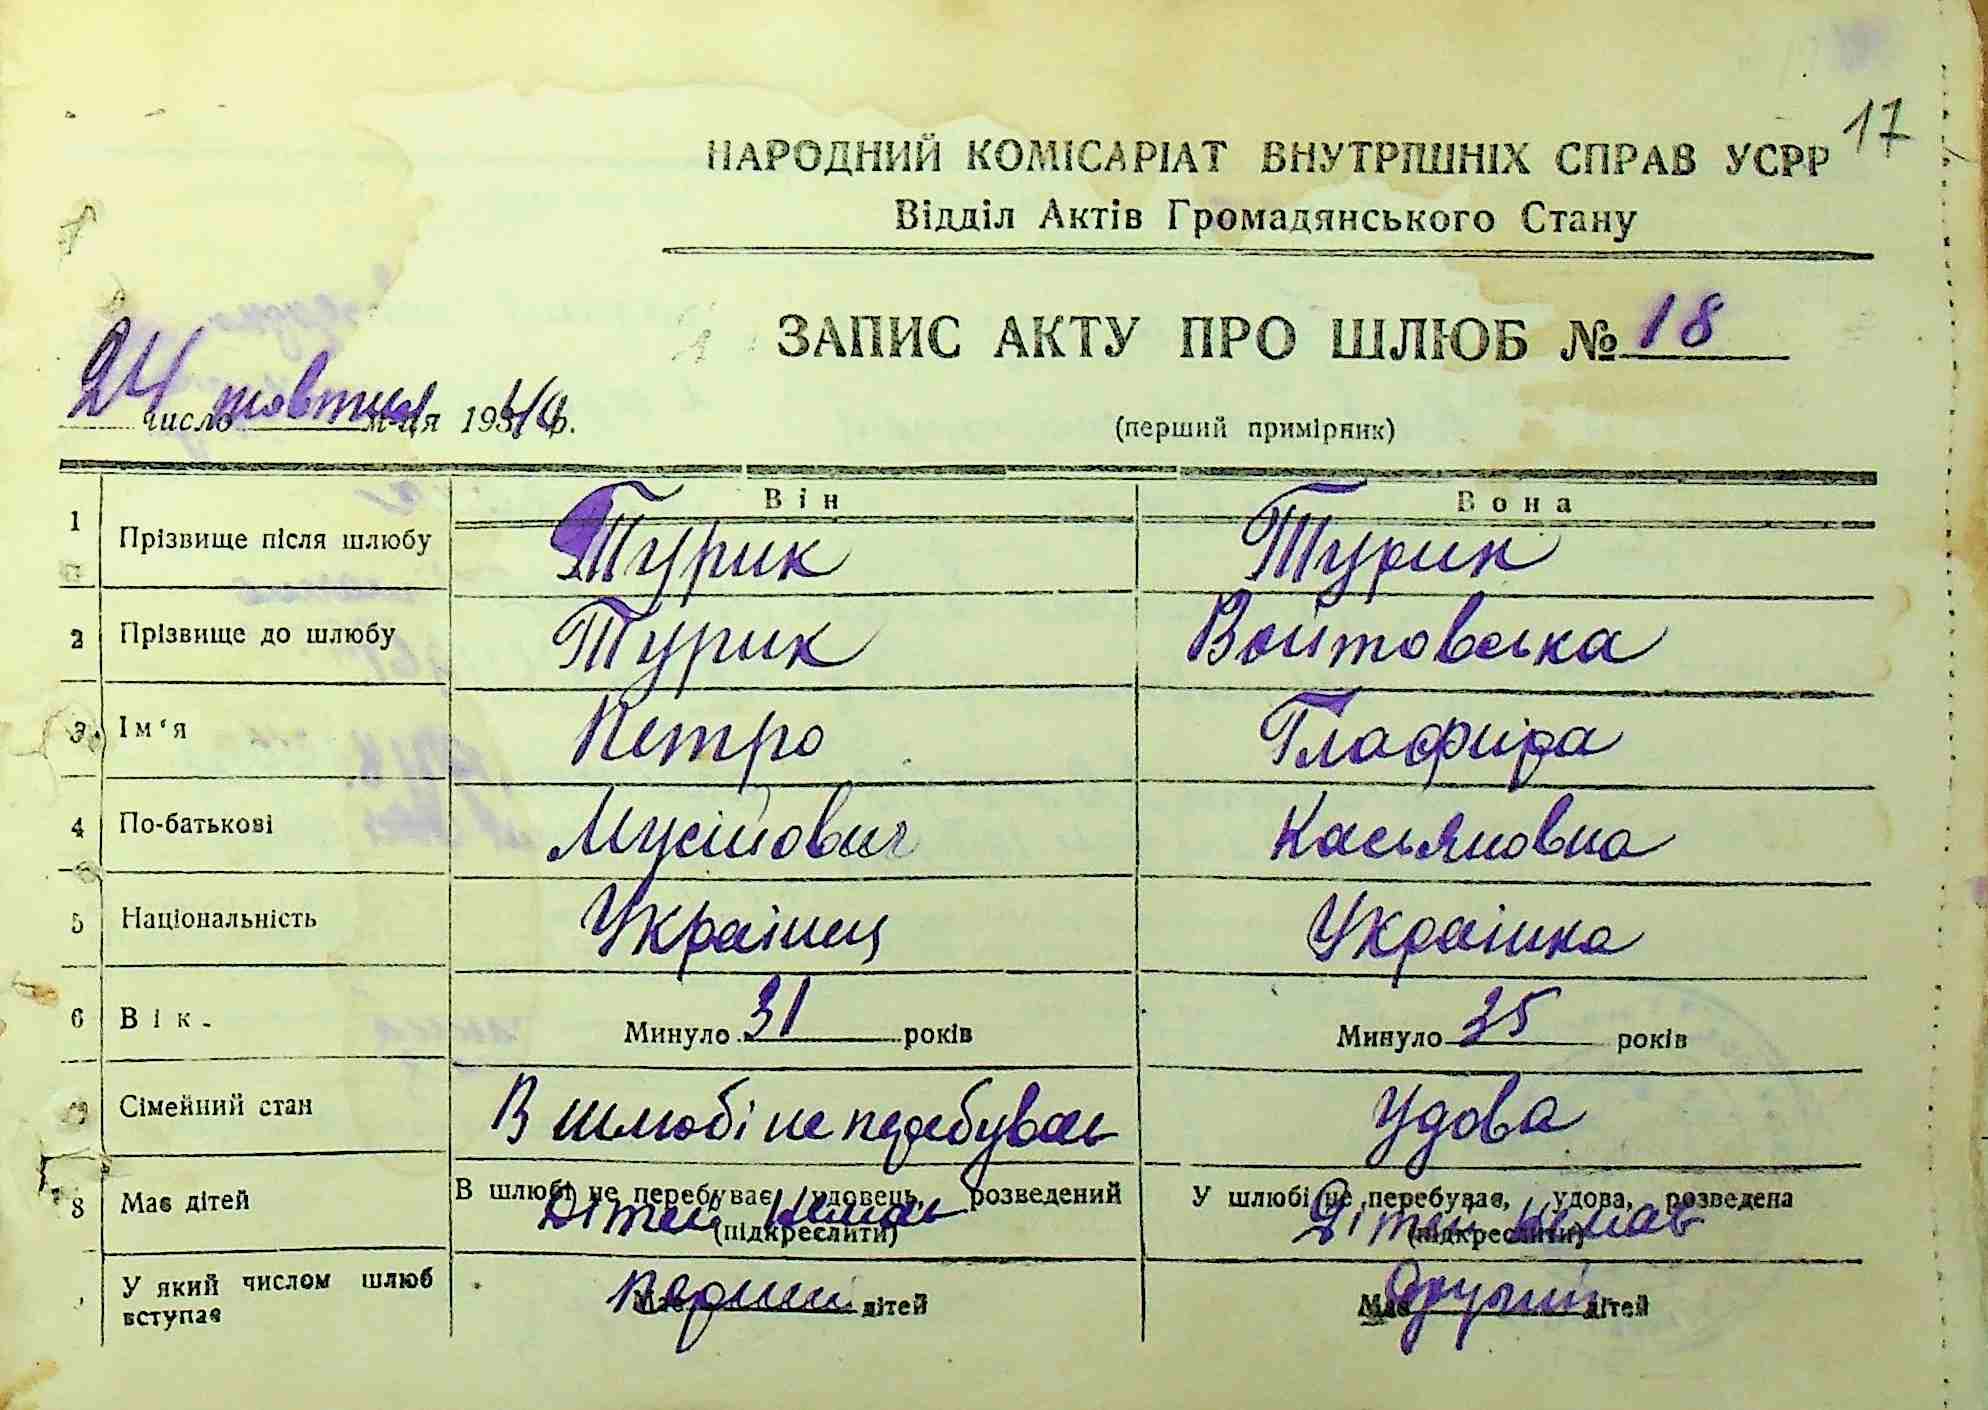 17
НАРОДНИЙ КОМІСАРІАТ ВНУТРІШНІХ СПРАВ УСРР
Відділ Актів Громадянського Стану
ЗАПИС АКТУ ПРО ШЛЮБ № 18
24 число жовтня м-ця 193 р.
(перший примірник)
Він Вона
1 Прізвище після шлюбу Турик Турик
2 Прізвище до шлюбу Турик Войтовська
3 Ім'я Петро Глафира
4 По-батькові Мусійович Касьяновна
5 Національність Українец Українка
6 Вік. Минуло 31 років Минуло 25 років
Сімейний стан В шлюбі не перебував Удова
8 Має дітей В шлюбі не перебуває, удовець, розведений У шлюбі не перебуває, удова, розведена
Дітей немає Дітей немає
(підкреслити) (підкреслити)
У який числом шлюб вступає Має Первий дітей Має Другий дітей